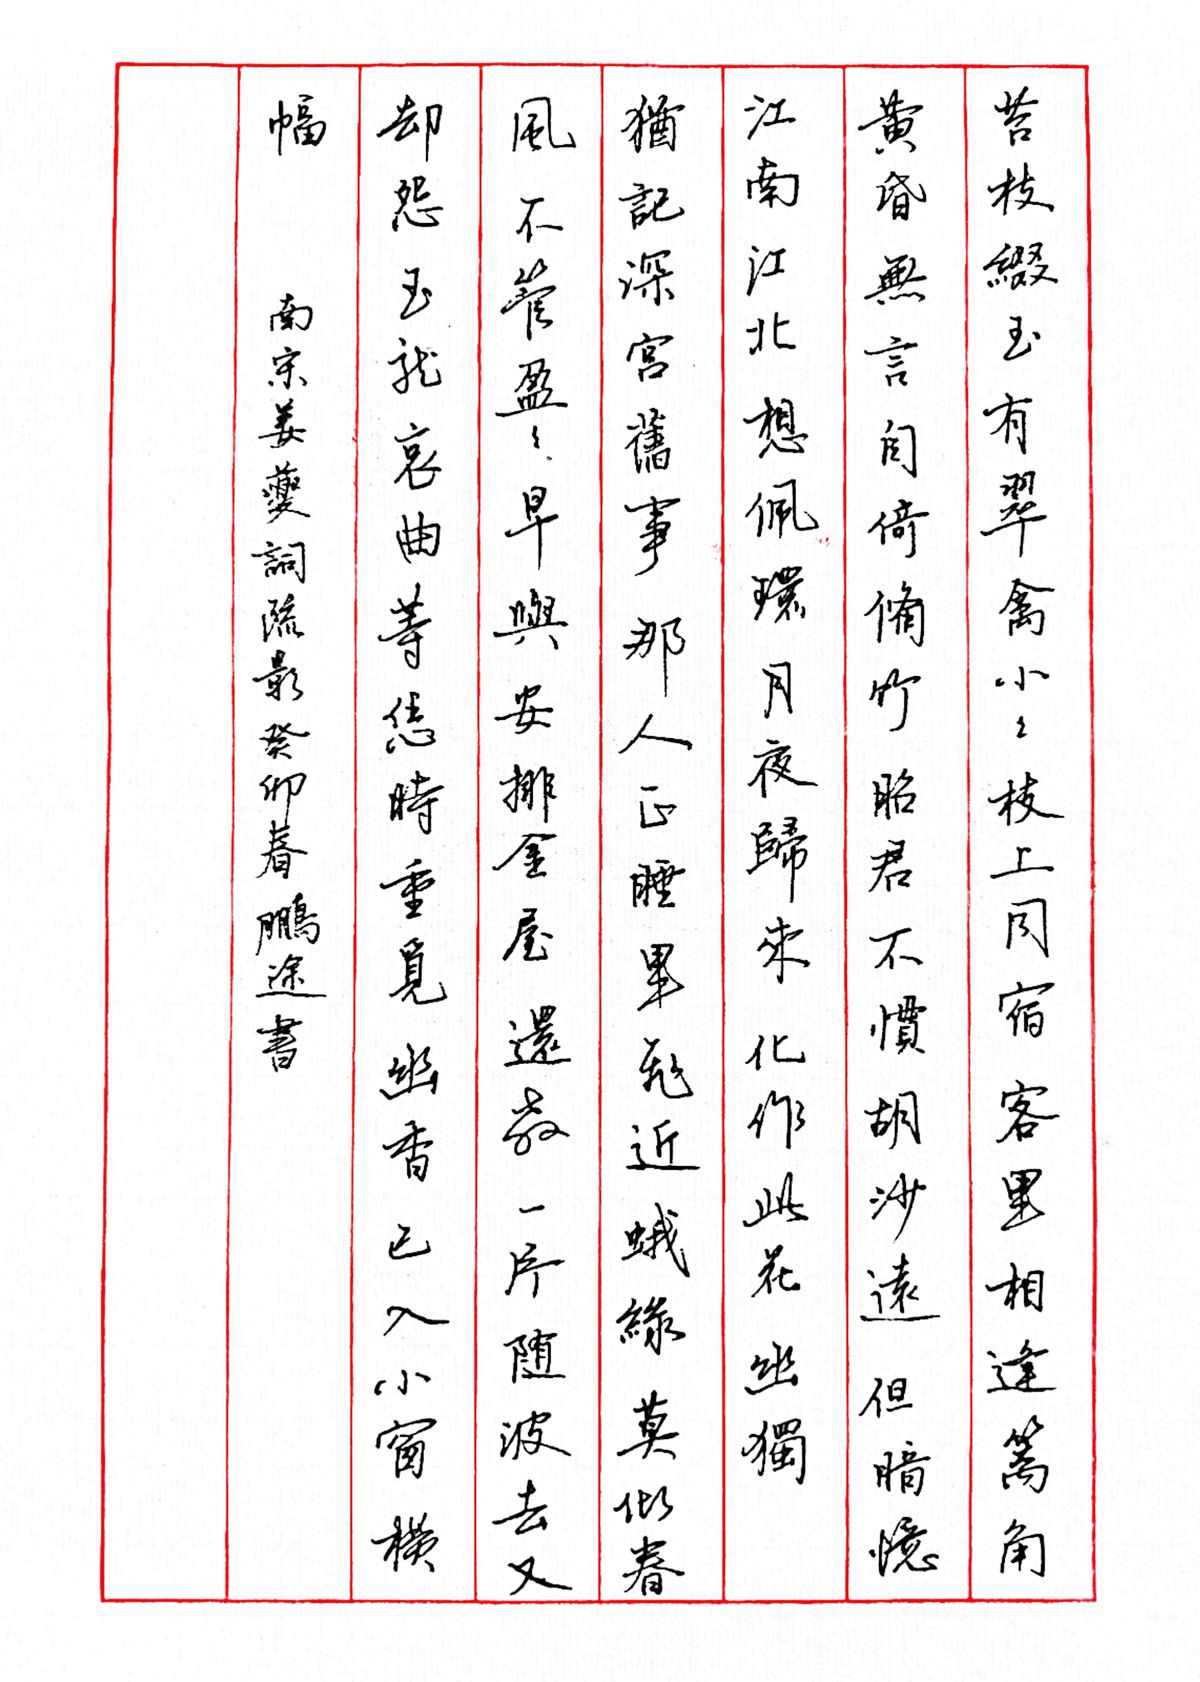 苔枝綴玉有翠禽小〻枝上同宿客里相逢篱角
黄昏無言自倚脩竹昭君不慣胡沙遠但暗憶
江南江北想佩環月夜歸來化作此花幽獨
猶記深宮舊事那人正睡里飛近蛾緑莫似春
風不管盈〻早與安排金屋還教一片随波去又
却怨玉龍哀曲等恁時重覓幽香已入小窗横
幅 南宋姜夔詞疏影癸卯春鵬途書